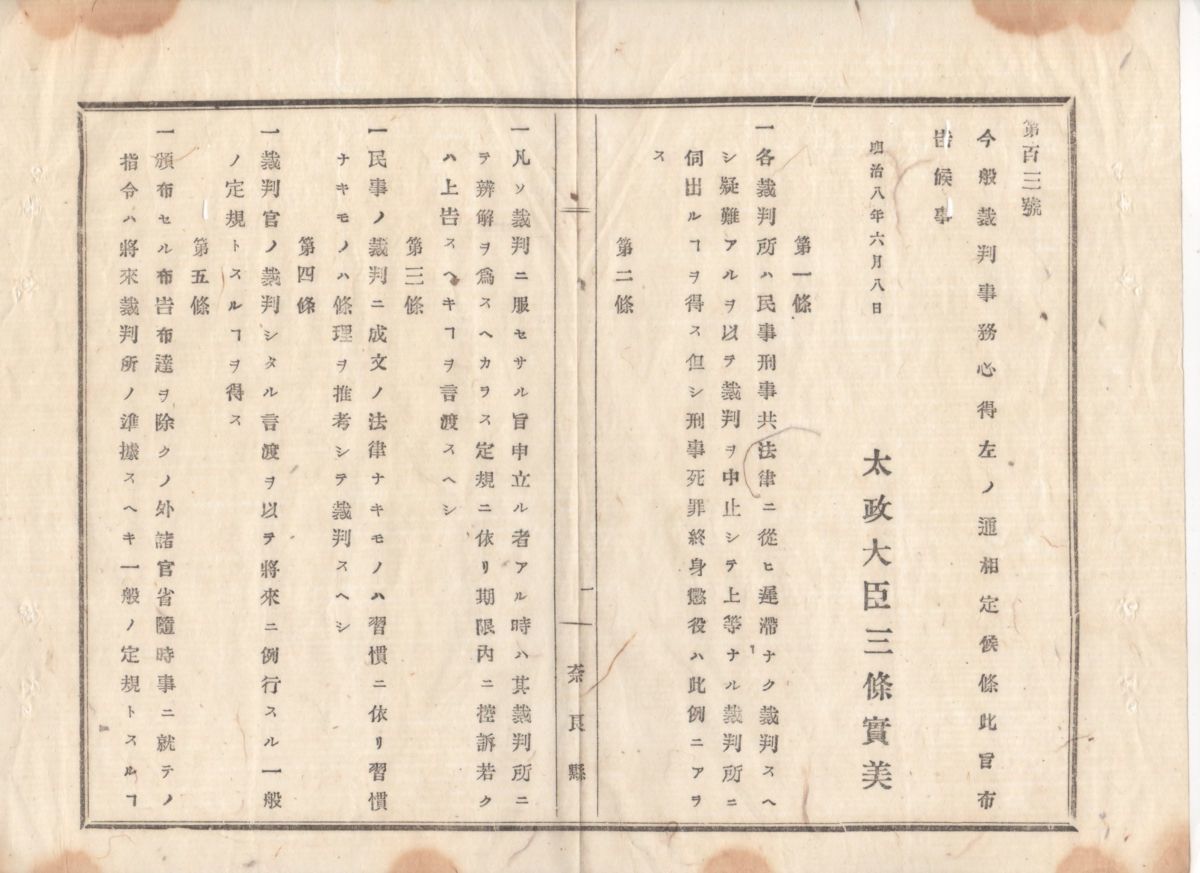 第百三號
今般裁判事務心得左ノ通相定候條此旨布
告候事
明治八年六月八日
太政大臣三條實美
第一條
一各裁判所ハ民事刑事共法律ニ從ヒ遲滯ナク裁判スヘ
シ疑難アルヲ以テ裁判ヲ中止シテ上等ナル裁判所ニ
伺出ルヿヲ得ス但シ刑事死罪終身懲役ハ此例ニアラ
ス
第二條
一
奈良縣
一凡ソ裁判ニ服セサル旨申立ル者アル時ハ其裁判所ニ
テ辨解ヲ爲スヘカラス定規ニ依リ期限內ニ控訴若ク
ハ上告スヘキヿヲ言渡スヘシ
第三條
一民事ノ裁判ニ成文ノ法律ナキモノハ習慣ニ依リ習慣
ナキモノハ條理ヲ推考シテ裁判スヘシ
第四條
一裁判官ノ裁判シタル言渡ヲ以テ將來ニ例行スル一般
ノ定規トスルヿヲ得ス
第五條
一頒布セル布告布達ヲ除クノ外諸官省隨時事ニ就テノ
指令ハ將來裁判所ノ準據スヘキ一般ノ定規トスルヿ